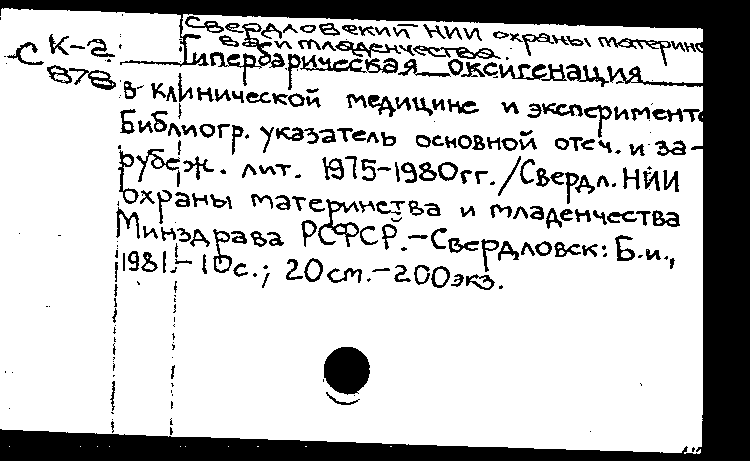 Свердловский НИИ охраны материнс
ва и младенчества.
С К-2
878
Гипербарическая оксигенация
в клинической медицине и эксперименте
Библиогр. указатель основной отеч. и за-
рубеж. лит. 1975-1980гг. /Свердл. НИИ
охраны материнства и младенчества
Минздрава РСФСР.-Свердловск: Б.и.,
1981.-10с.; 20см.-200экз.